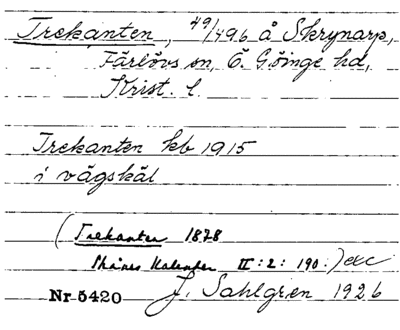 Trekanten, 49/496 å Skrynarp,
Färlövs sn, Ö. Göinge hd,
Krist. l.
Trekanten kb 1915
i vägskäl
(Trekanten 1878
Skånes Kalender II:2: 190.) exc
Nr 5420 J. Sahlgren 1926